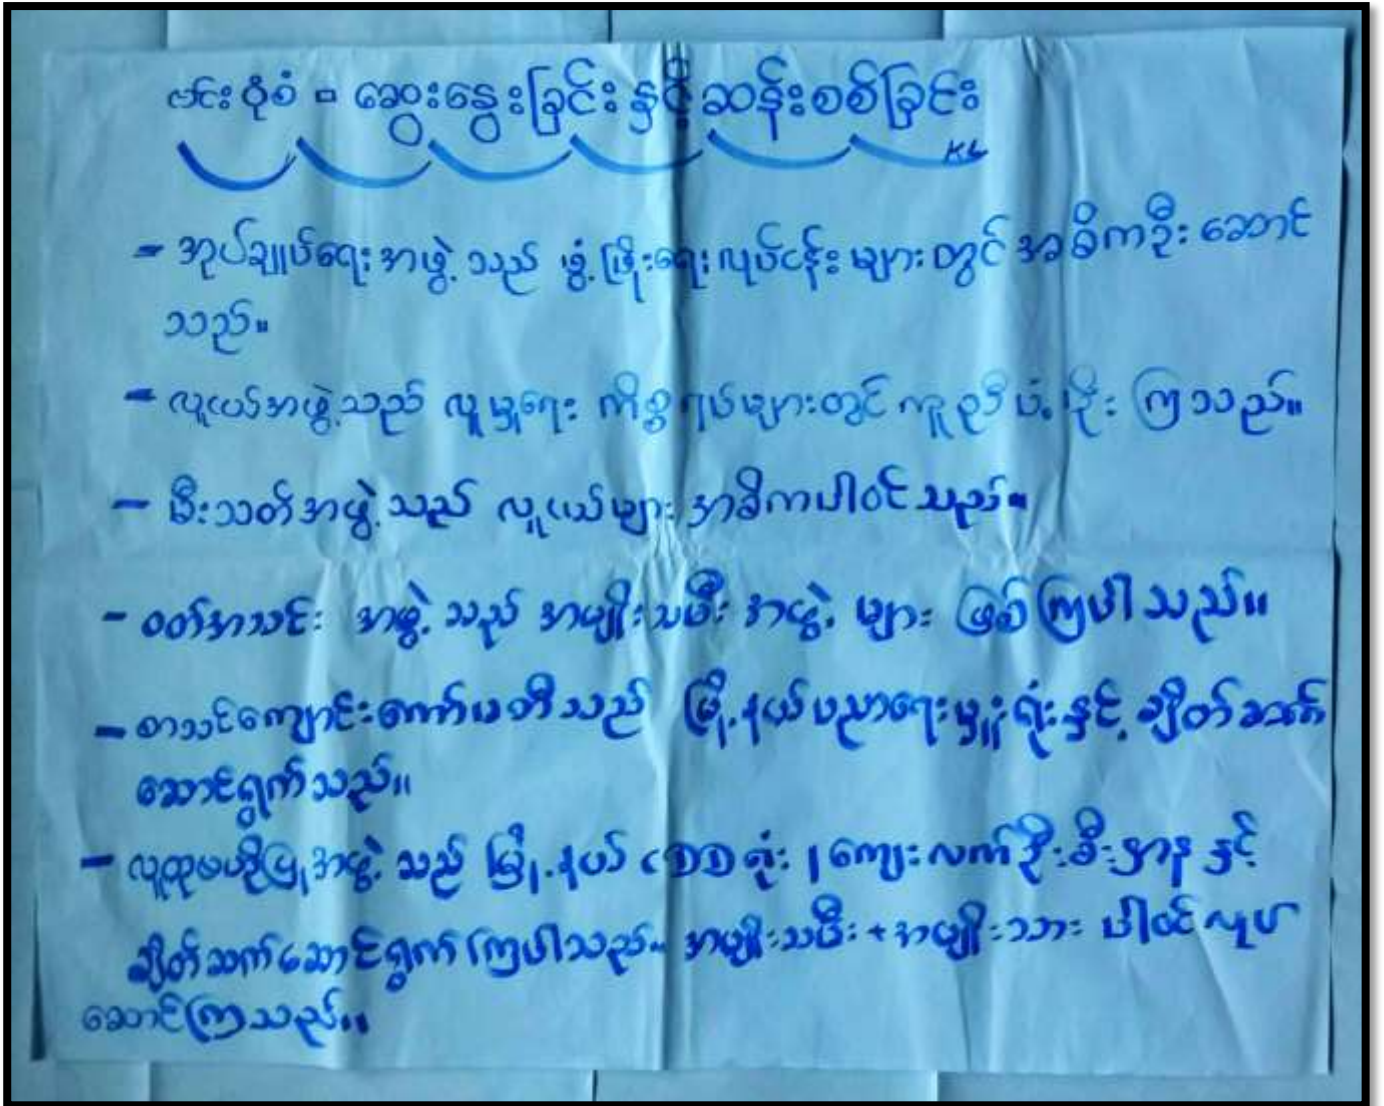 ဗင်းပုံစံ = ဆွေးနွေးခြင်းနှင့်ဆန်းစစ်ခြင်း
KL
- အုပ်ချုပ်ရေးအဖွဲ့သည် ဖွံ့ဖြိုးရေးလုပ်ငန်းများတွင် အဓိကဦးဆောင်
သည်။
- လူငယ်အဖွဲ့သည် လူမှုရေး ကိစ္စရပ်များတွင် ကူညီပံ့ပိုးကြသည်။
- မီးသတ်အဖွဲ့သည် လူငယ်များ အဓိကပါဝင်သည်။
- ဝတ်အသင်း အဖွဲ့သည် အမျိုးသမီး အဖွဲ့များ ဖြစ်ကြပါသည်။
- စာသင်ကျောင်းကော်မတီသည် မြို့နယ်ပညာရေးမှူးရုံးနှင့် ချိတ်ဆက်
ဆောင်ရွက်သည်။
- လူထုဗဟိုပြုအဖွဲ့သည် မြို့နယ် CDD ရုံး၊ ကျေးလက်ဦးစီးဌာနနှင့်
ချိတ်ဆက်ဆောင်ရွက်ကြပါသည်။ အမျိုးသမီး + အမျိုးသား ပါဝင်လုပ်
ဆောင်ကြသည်။